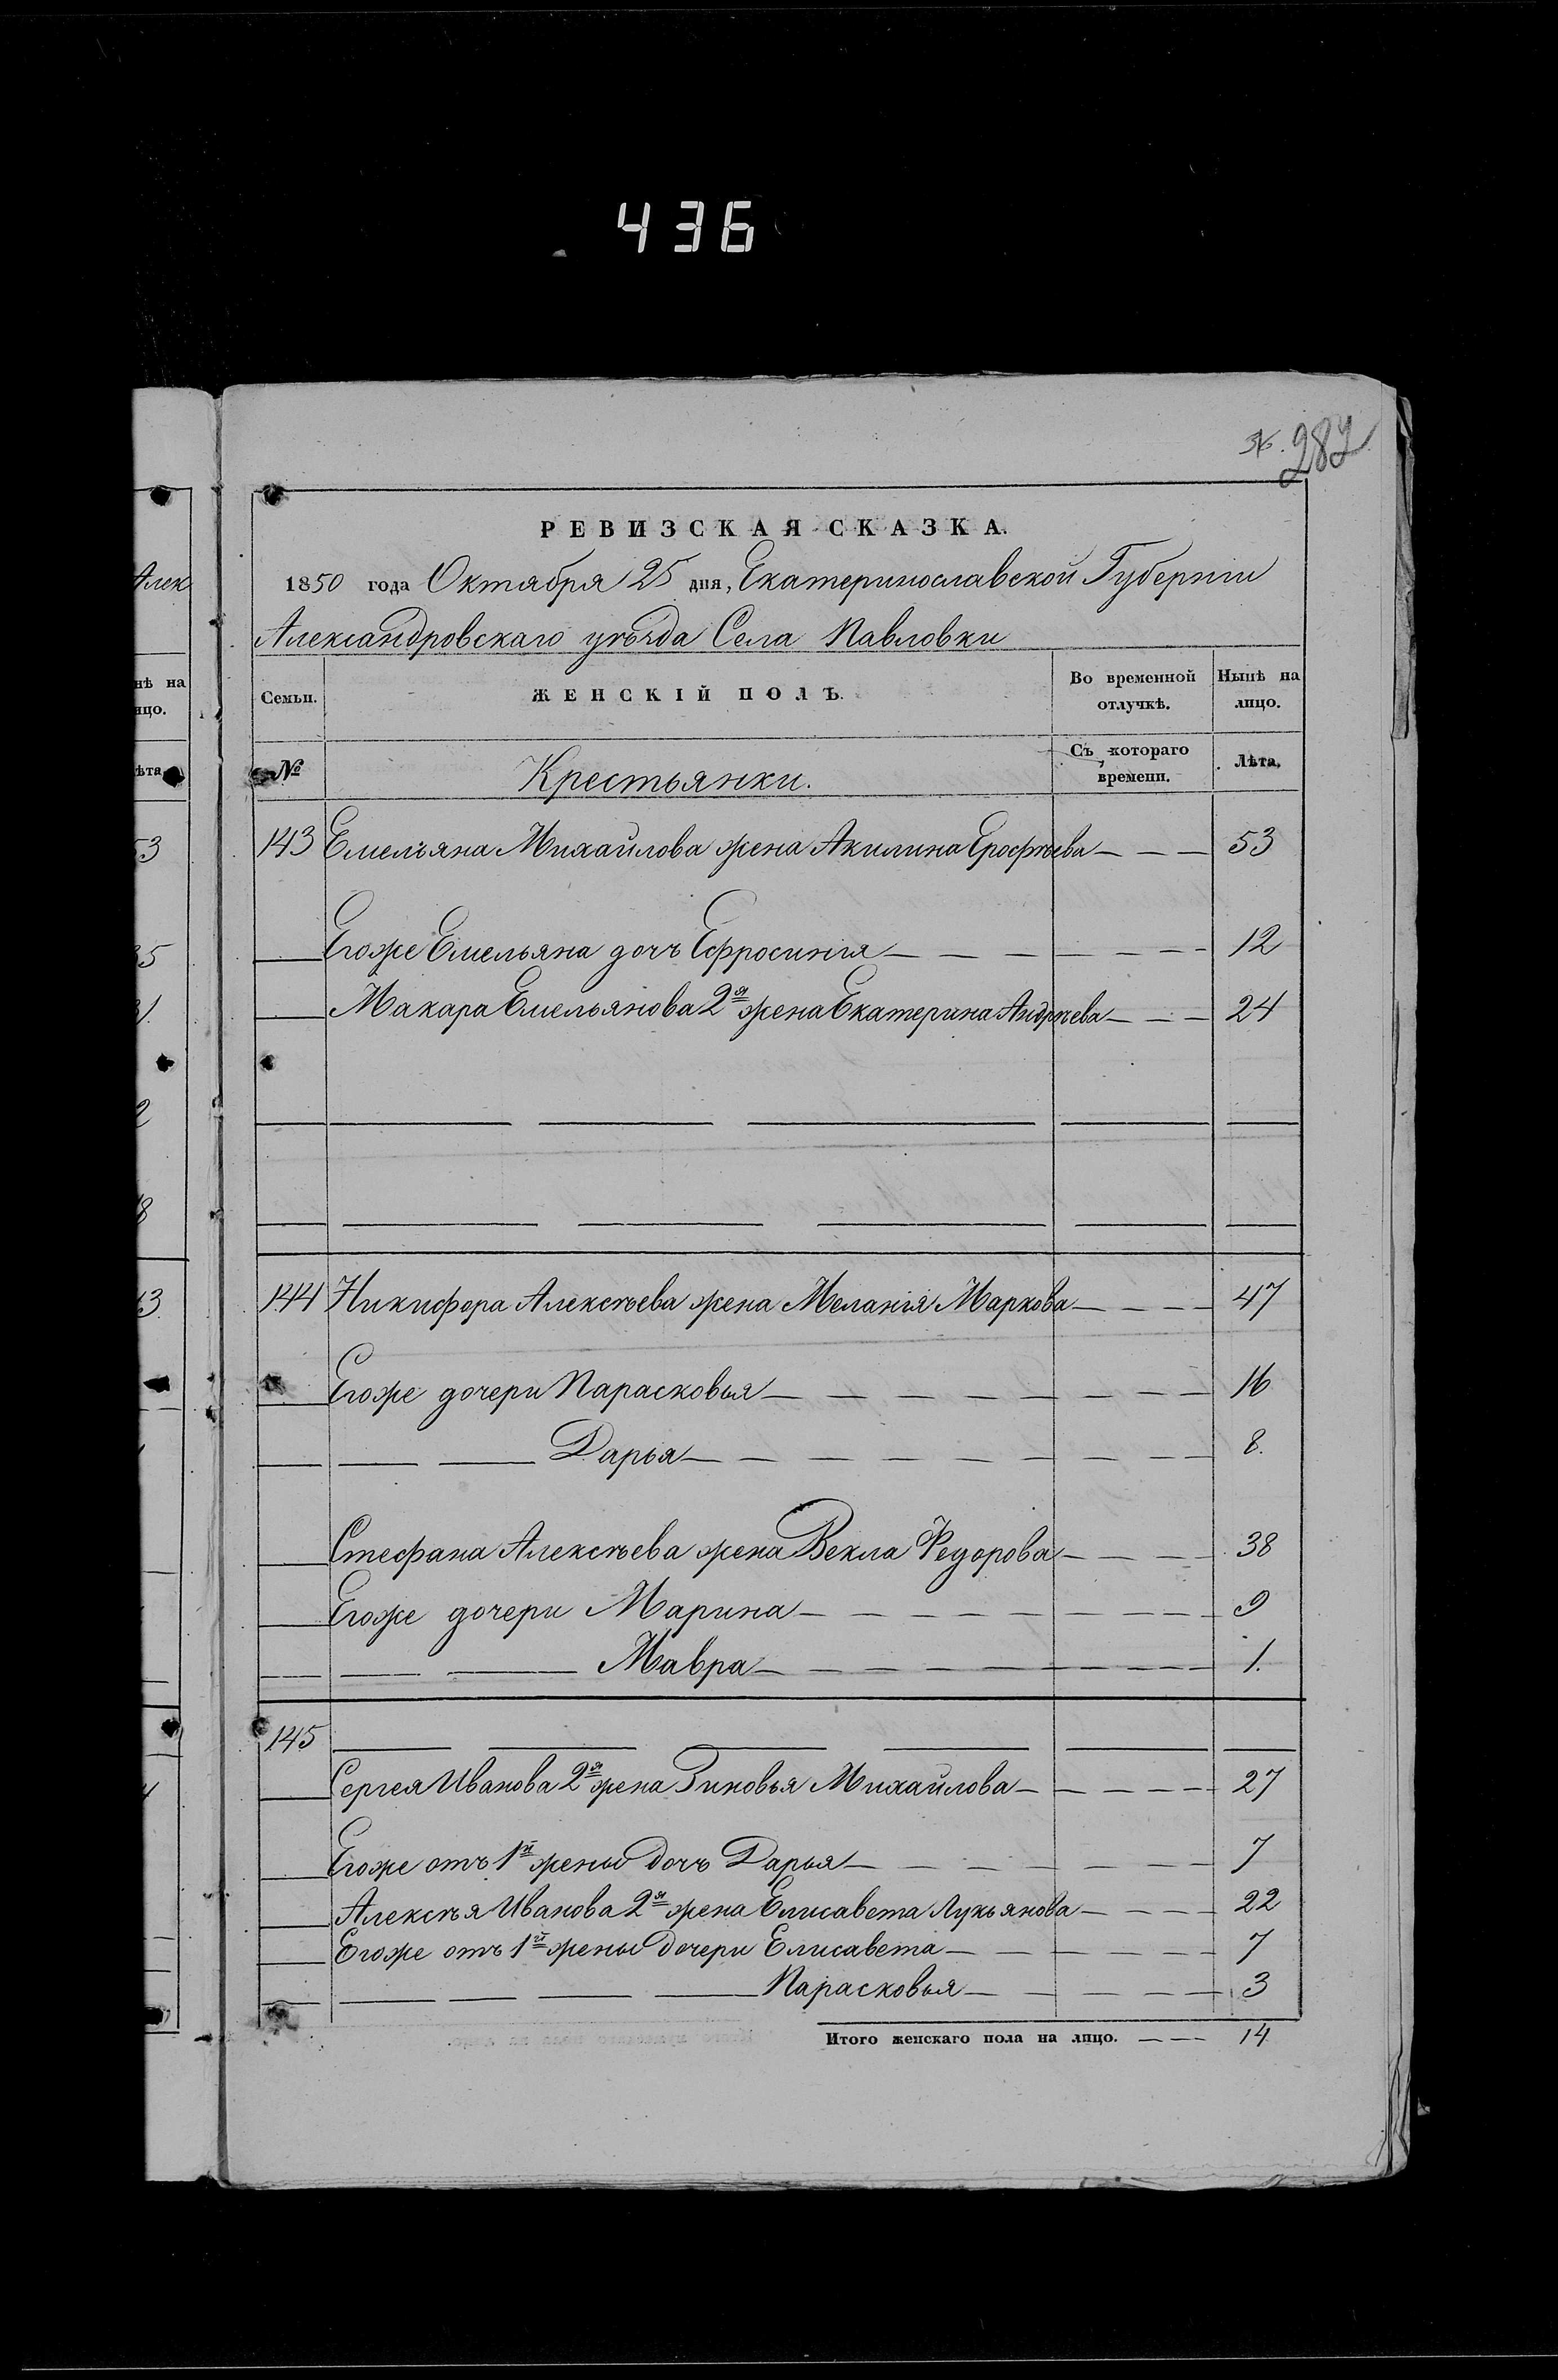 436
282
РЕВИЗСКАЯ СКАЗКА.
1850 года Октября 25 дня, Екатеринославской Губерніи
Александровскаго уѣзда Села Павловки
Семьи. ЖЕНСКІЙ ПОЛЪ. Во временной отлучкѣ. Нынѣ на лицо.
№ Крестьянки. Съ котораго времени. Лѣта.
143 Емельяна Михайлова жена Акилина Ерофѣева — — — 53
Егоже Емельяна дочь Ефросинія — — — — — — 12
Макара Емельянова 2я жена Екатерина Андрѣева — — — 24
144 Никифора Алексѣева жена Меланія Маркова — — — — 47
Егоже дочери Парасковья — — — — — — — — 16
— — — Дарья — — — — — — — — 8.
Стефана Алексѣева жена Векла Федорова — — — — 38
Егоже дочери Марина — — — — — — — — 9
— — — Мавра — — — — — — — — 1.
145 — — — — — —
Сергея Иванова 2я жена Зиновья Михайлова — — — — — 27
Егоже отъ 1й жены дочь Дарья — — — — — — — 7
Алексѣя Иванова 2я жена Елисавета Лукьянова — — — — 22
Егоже отъ 1й жены дочери Елисавета — — — — — — 7
— — — — — Парасковья — — — — — 3
Итого женскаго пола на лицо. — — 14
Алек
нѣ на
ицо.
ѣта
53
35
31.
2
18
43